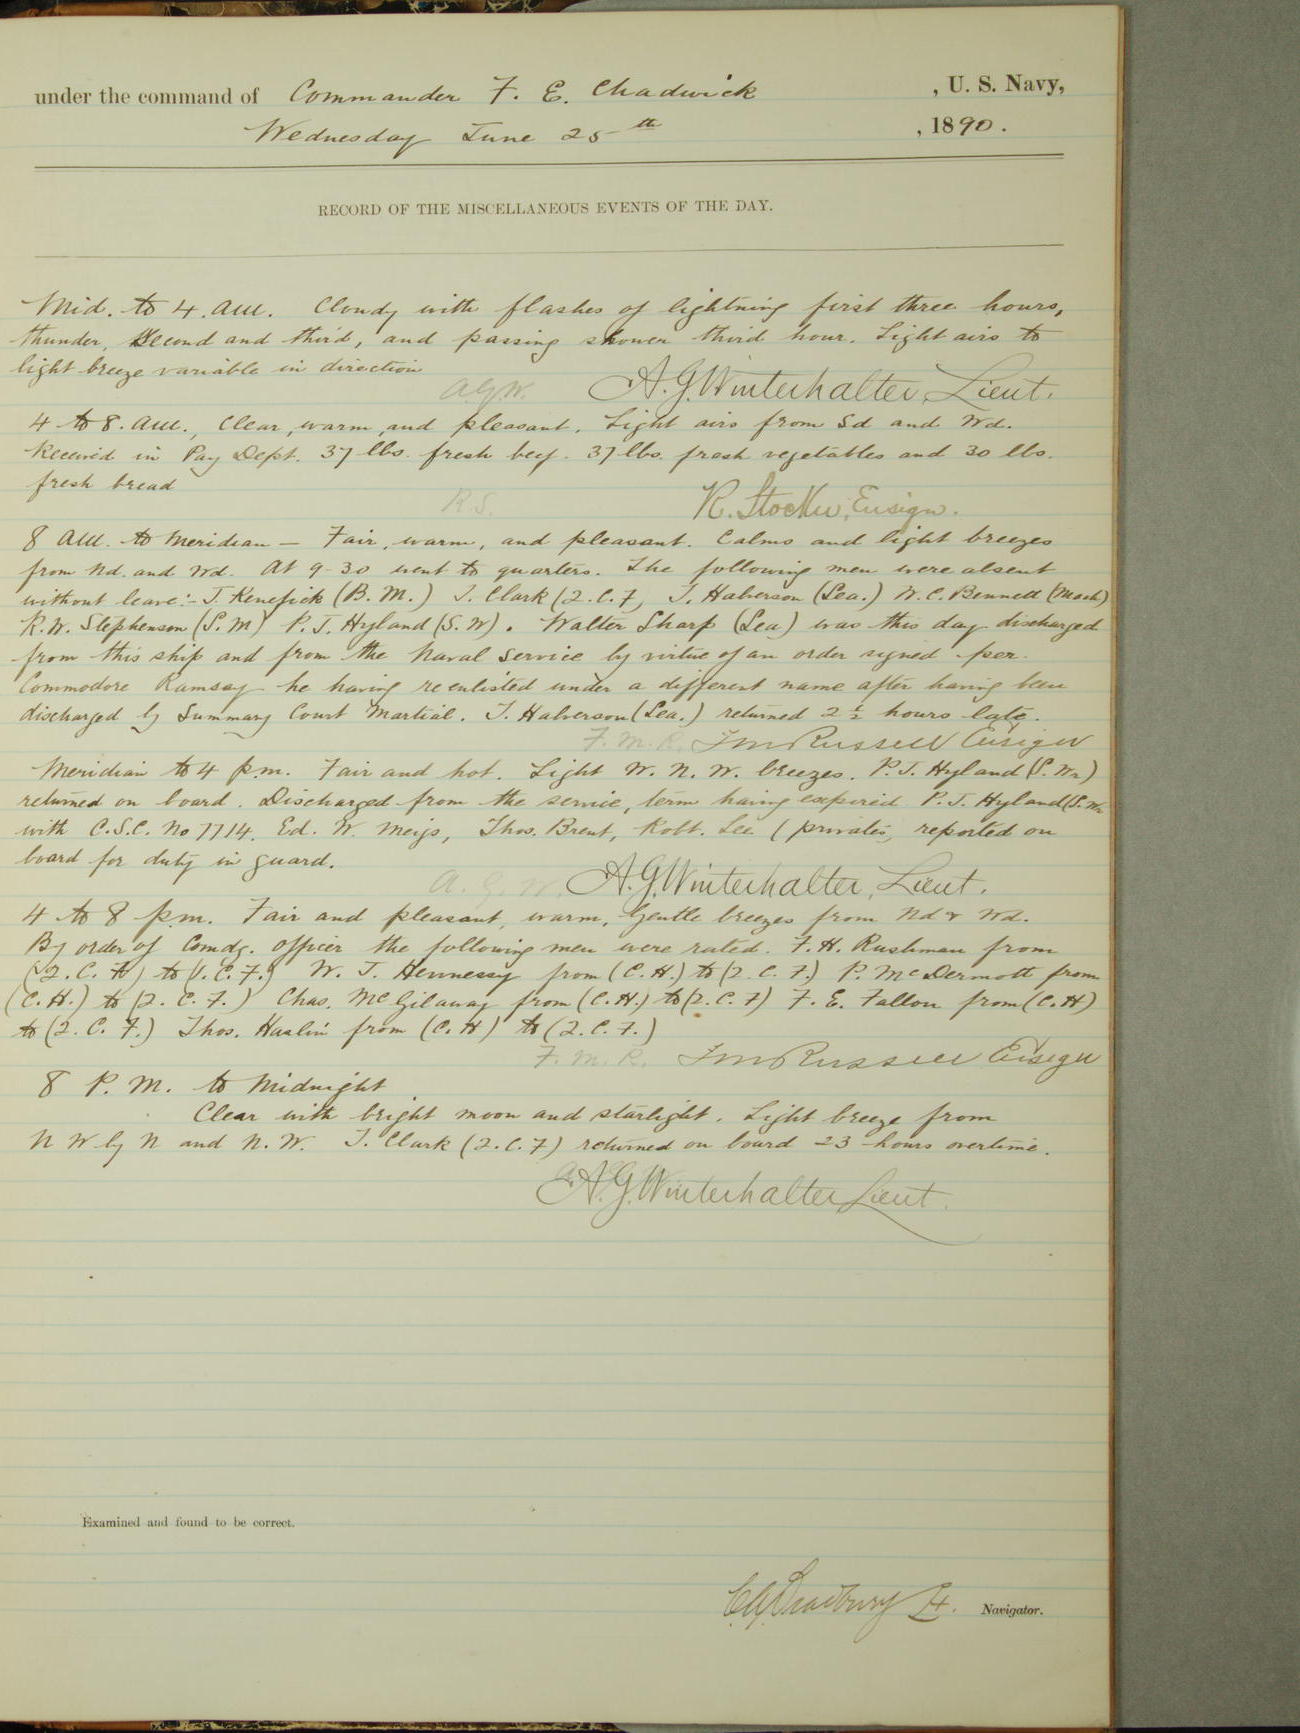 under the command of Commander F. E. Chadwick , U. S. Navy,
Wednesday June 25th , 1890.
RECORD OF THE MISCELLANEOUS EVENTS OF THE DAY.
Mid. to 4. A.M. Cloudy with flashes of lightning first three hours,
thunder, second and third, and passing shower third hour. Light airs to
light breeze variable in direction
A.G.W. A. G. Winterhalter, Lieut.
4 to 8. A.M., Clear, warm, and pleasant. Light airs from Sd and Wd.
Received in Pay Dept. 37 lbs. fresh beef. 37 lbs. fresh vegetables and 30 lbs.
fresh bread
R.S. R. Stocker, Ensign.
8 A.M. to Meridian — Fair, warm, and pleasant. Calms and light breezes
from Nd. and Wd. At 9-30 went to quarters. The following men were absent
without leave:- J. Kenefick (B. M.) J. Clark (2. C. F, J. Halverson (Sea.) W. C. Bennett (Mach)
R. W. Stephenson (S. M) P. J. Hyland (S. W). Walter Sharp (Sea) was this day discharged
from this ship and from the Naval Service by virtue of an order signed per
Commodore Ramsay he having reenlisted under a different name after having been
discharged by Summary Court Martial. J. Halverson (Sea.) returned 2 1/2 hours late.
F. M. R. F M Russell Ensign
Meridian to 4 p.m. Fair and hot. Light W. N. W. breezes. P. J. Hyland (S. Wr)
returned on board. Discharged from the service, term having expired P. J. Hyland (S. Wr
with C.S.C. No 7714. Ed. W. Meigs, Thos. Brent, Robt. Lee (privates, reported on
board for duty in guard.
A. G. W. A. G. Winterhalter, Lieut.
4 to 8 p.m. Fair and pleasant, warm, Gentle breezes from Nd & Wd.
By order of Comdg. officer the following men were rated. F. H. Rushman from
(2. C. F.) to (1. C. F.) W. J. Hennessy from (C. H.) to (2. C. F.) P. McDermott from
(C. H.) to (2. C. F.) Chas. McGilaway from (C. H.) to (2. C. F) F. E. Fallon from (C. H)
to (2. C. F.) Thos. Haslin from (C. H) to (2. C. F.)
F. M. R. F M Russell Ensign
8 P. M. to Midnight
Clear with bright moon and starlight. Light breeze from
N W by N and N. W. J. Clark (2. C. F) returned on board 23 hours overtime.
A. G. Winterhalter Lieut.
Examined and found to be correct.
C. G. Bradbury Lt. Navigator.